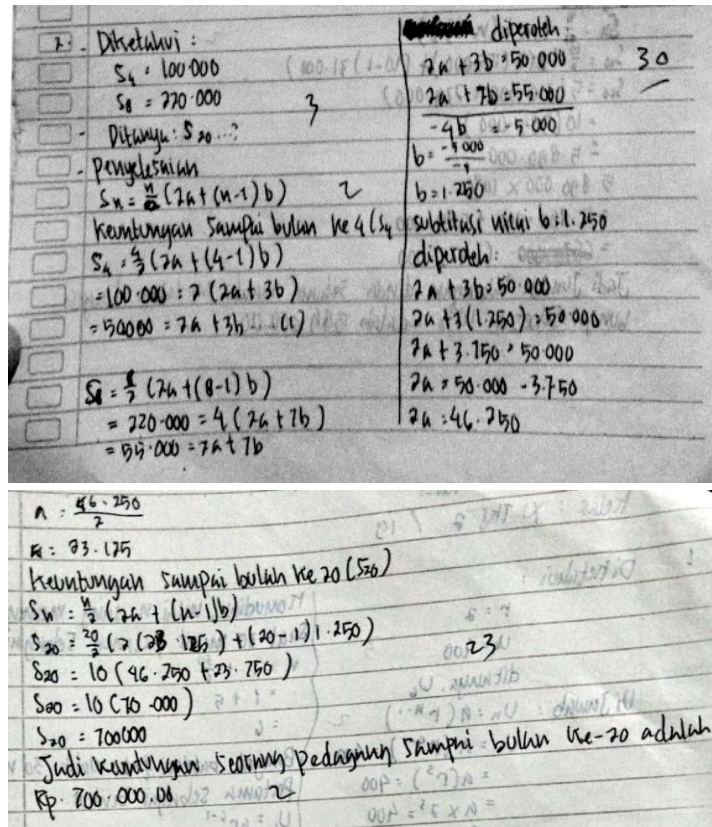 2. - Diketahui :
S₄ = 100.000
S₈ = 220.000
3
- Ditanya : S₂₀ ...?
- Penyelesaian
Sₙ = n/2 (2a + (n-1) b)
2
Keuntungan sampai bulan ke 4 (S₄
S₄ = 4/2 (2a + (4-1) b)
= 100.000 = 2 (2a + 3b)
= 50000 = 2a + 3b ... (1)
S₈ = 8/2 (2a + (8-1) b)
= 220.000 = 4 (2a + 7b)
= 55.000 = 2a + 7b
diperoleh
2a + 3b = 50.000
30
2a + 7b = 55.000
-4b = 5.000
b = -5000/-4
b = 1.250
subtitusi nilai b = 1.250
diperoleh :
2a + 3b = 50.000
2a + 3 (1.250) = 50.000
2a + 3.750 = 50.000
2a = 50.000 - 3.750
2a = 46.250
a = 46.250/2
a = 23.125
Keuntungan sampai bulan ke 20 (S₂₀)
Sₙ = n/2 (2a + (n-1) b)
S₂₀ = 20/2 (2 (23 125) + (20-1) 1.250)
23
S₂₀ = 10 (46.250 + 23.750)
S₂₀ = 10 (70.000)
S₂₀ = 700000
Jadi keuntungan seorang pedagang sampai bulan ke-20 adalah
Rp. 700.000.00
2